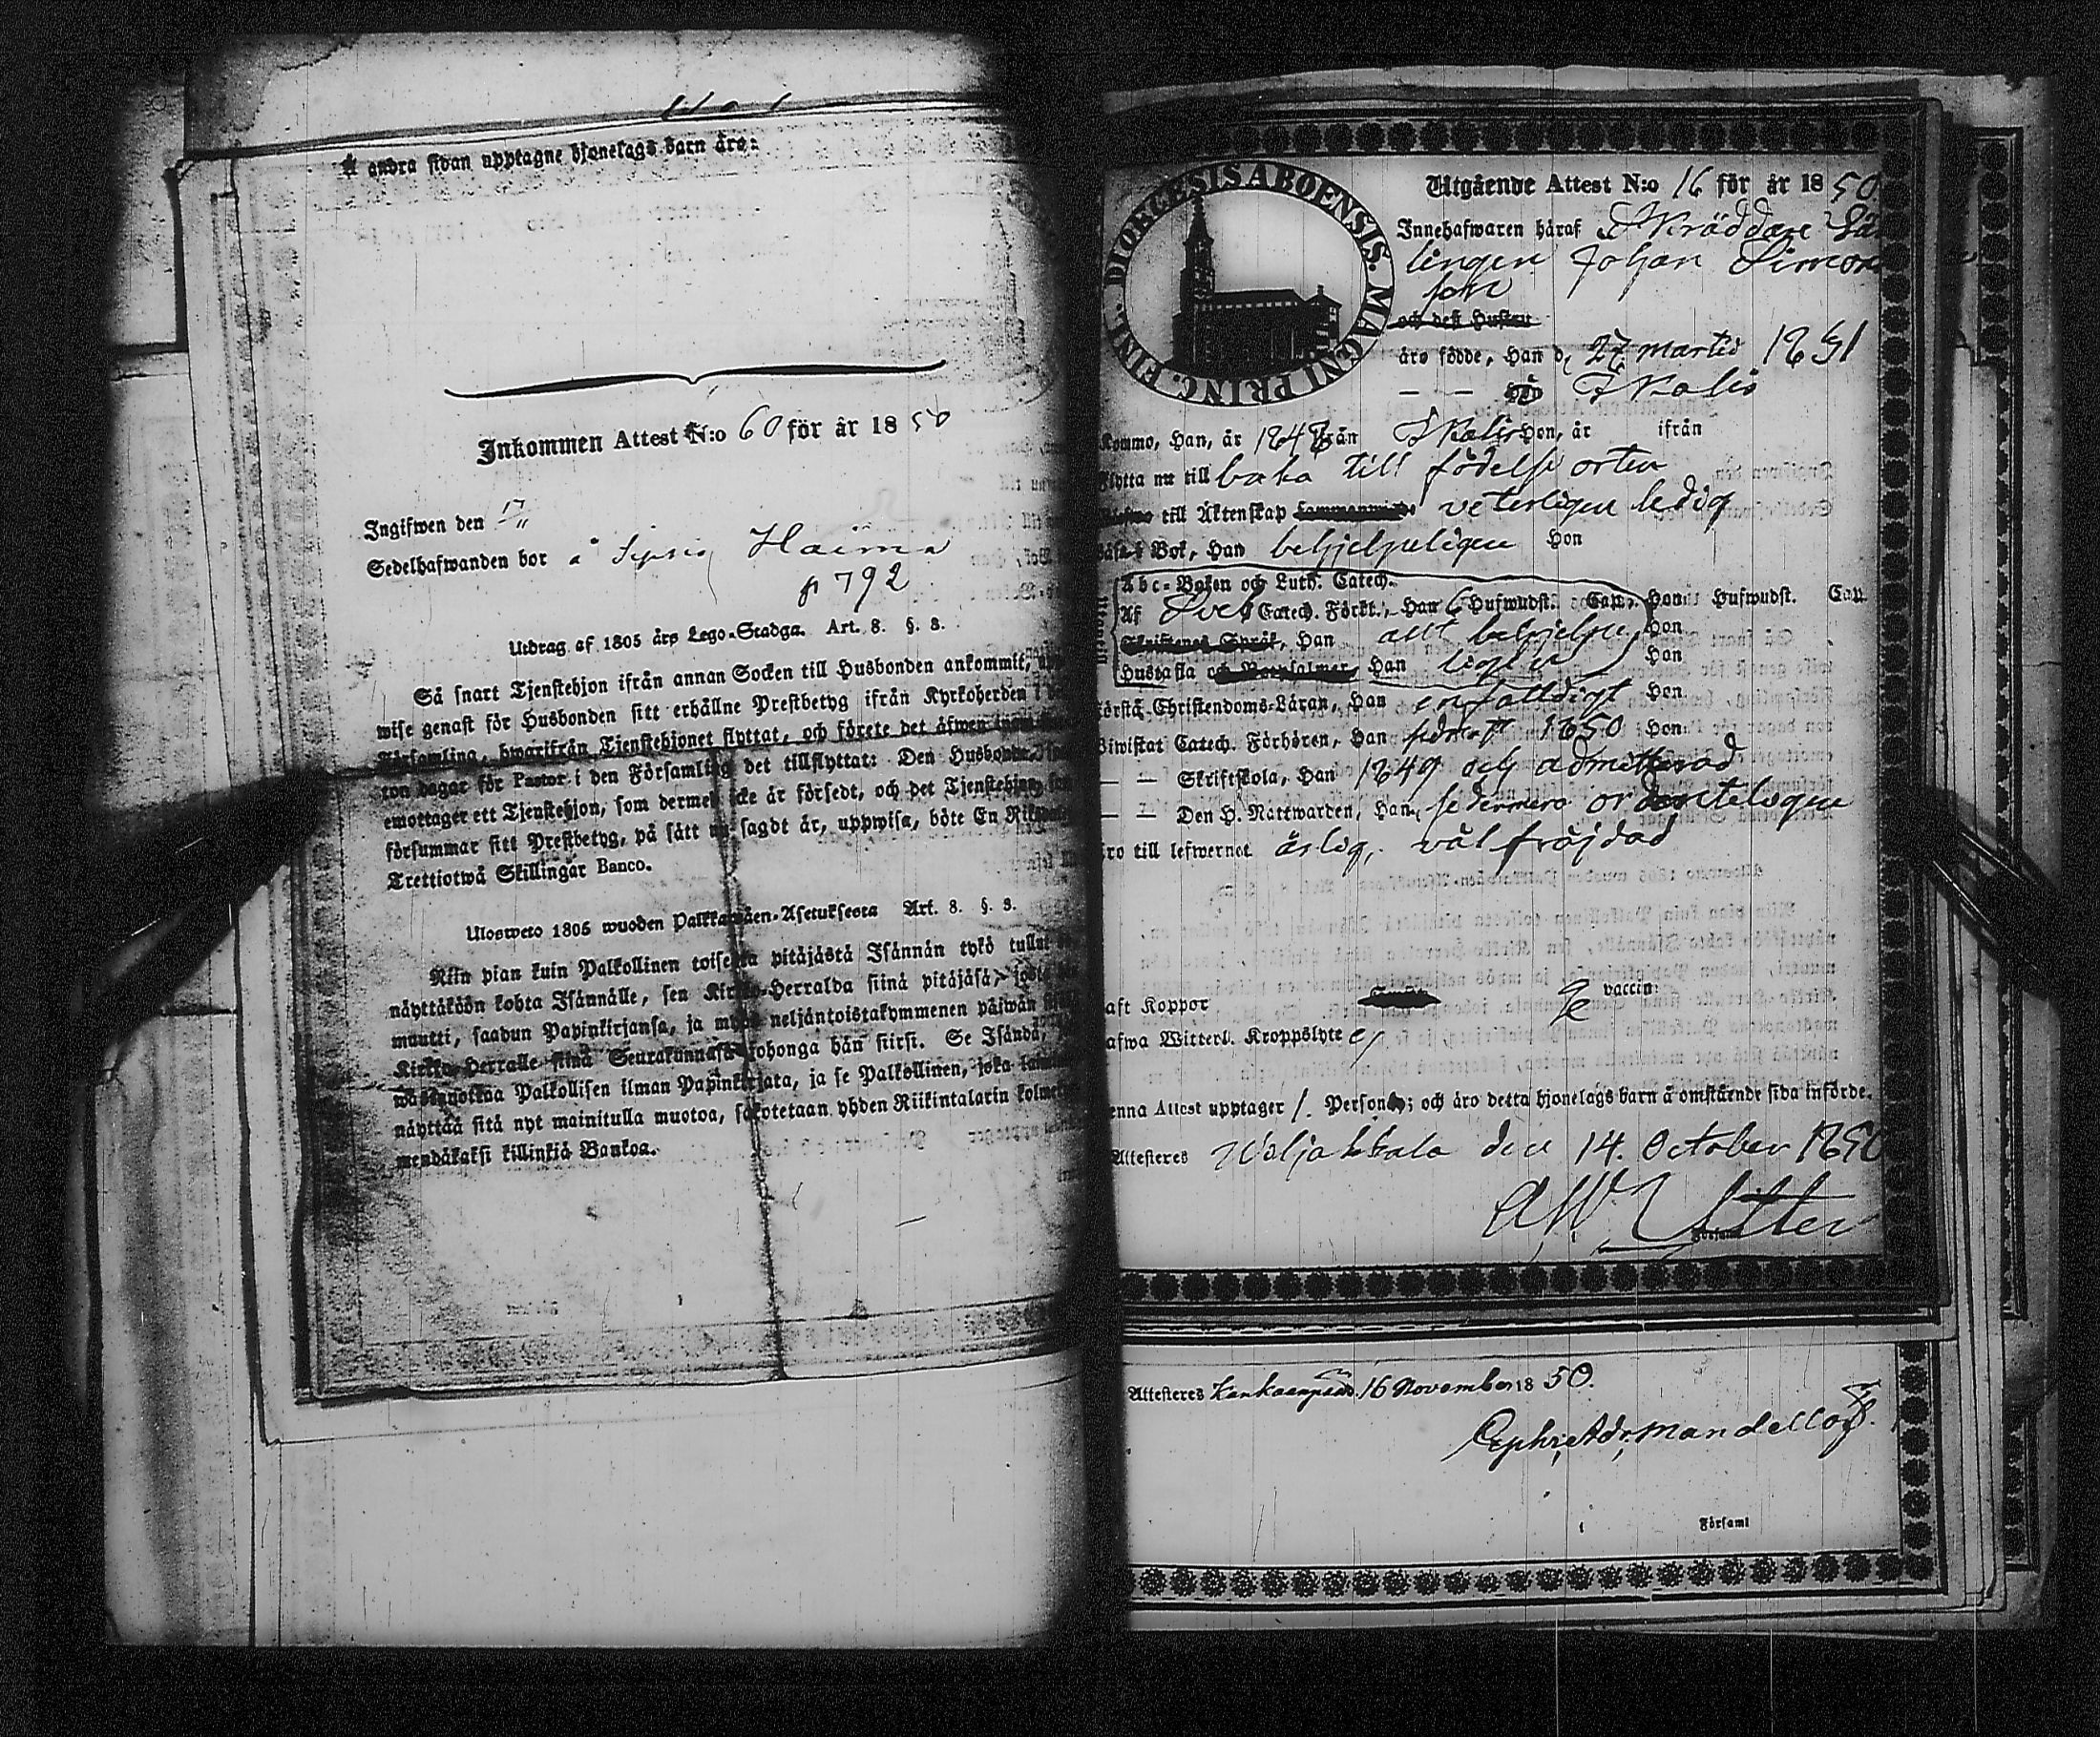 Å andra sidan upptagne hjonelags barn äro:
Inkommen Attest N:o 60 för år 1850
Ingifwen den
Sedelhafwanden bor å
p 792
Utdrag af 1805 års Lego-Stadga. Art. 8. §. 3.
Så snart Tjenstehjon ifrån annan Socken till Husbonden ankommit,
wise genast för Husbonden sitt erhållne Prestbetyg ifrån Kyrkoherden i
Församling, hwarifrån Tjenstehjonet flyttat, och förete det äfwen inom
ton dagar för Pastor i den Församling det tillflyttat: Den Husbonde,
emottager ett Tjenstehjon, som dermed icke är försedt, och det Tjenstehjon,
försummar sitt Prestbetyg, på sätt nu sagdt är, uppwisa, böte En
Trettiotwå Skillingar Banco.
Ulosweto 1805 wuoden Palkkawäen-Asetuksesta Art. 8. §. 3.
Niin pian kuin Palkollinen toisesta pitäjästä Isännän tykö tullut
näyttäköön kohta Isännälle, sen Kirkko-Herralda siinä pitäjäsä,
muutti, saadun Papinkirjansa, ja myös neljäntoistakymmenen päiwän
Kirkko-Herralle siinä Seurakunnasa johonga hän siirsi. Se Isändä,
wastanottaa Palkollisen ilman Papinkirjata, ja se Palkollinen, joka
näyttää sitä nyt mainitulla muotoa, sakotetaan yhden Riikintalarin
mendäkaksi killinkiä Bankoa.
FINL. DIOECESIS ABOENSIS. MAGNI PRINC.
Utgående Attest N:o 16 för år 1850.
Innehafwaren häraf Skräddare
lingen Johan Simon
son
och dess Hustru
äro födde, Han d. 27 martii 1831
Ikalis
Kommo, Han, år 184 från Ikalis Hon, år ifrån
Flytta nu till baka till födelse orten
till Äktenskap veterligen ledig
Bok, Han behjelpeligen Hon
Abc-Boken och Luth. Catech.
Af Sveb Catech. Förkl., Han 6 Hufwudst. Cap. Hon Hufwudst. Cap.
Skriftenes Språk, Han allt behjelpe Hon
Hustafla och Botpsalmer, Han ligen Hon
Förstå Christendoms-Läran, Han enfalldigt Hon
Biwistat Catech. Förhören, Han 1850 Hon
— — Skriftskola, Han 1849 och admitterad
— — Den H. Nattwarden, Han, sedermera ordenteligen
äro till lefwernet ärlig, väl fräjdad
haft Koppor vaccin:
hafwa Witterl. Kroppslyte ej
Denna Attest upptager 1. Person; och äro detta hjonelags barn å omstående sida införde.
Attesteres Viljakkala den 14. October 1850
Attesteres Kankaanpää 16 November 1850.
Mandellöf.
Församl